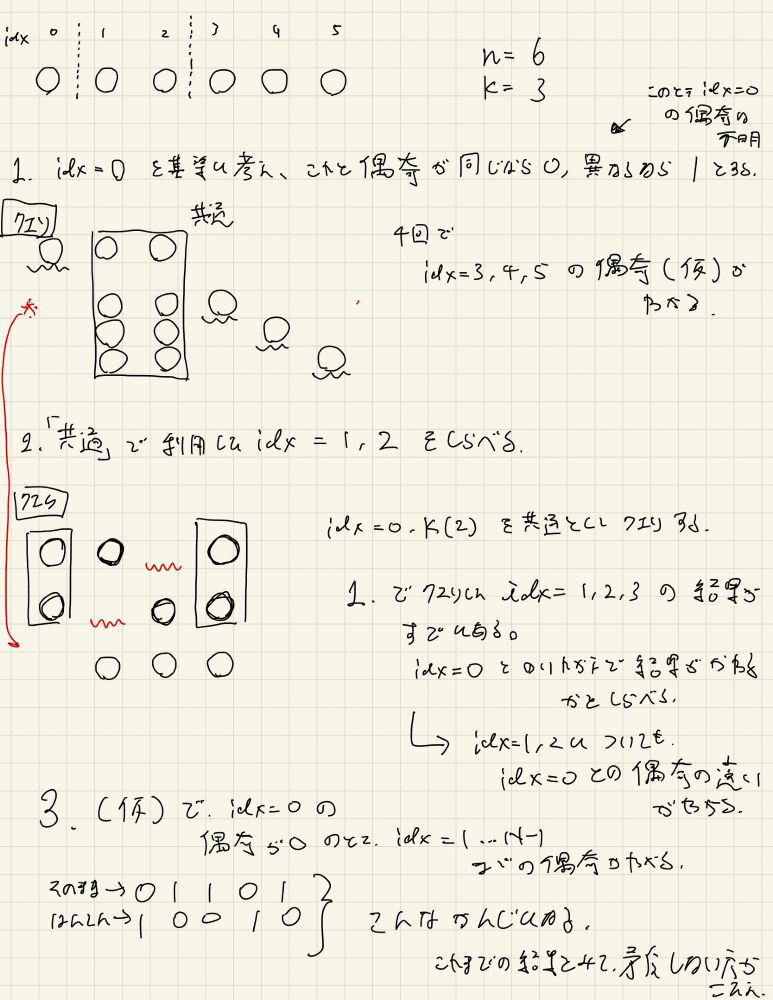 idx 0 1 2 3 4 5
n = 6
k = 3
このとき idx=0
の偶奇は
不明
1. idx=0 を基準に考え、これと偶奇が同じなら 0, 異なるなら 1 とする.
クエリ
共通
4回で
idx=3, 4, 5 の偶奇(仮)が
わかる.
2.「共通」で利用した idx = 1, 2 をしらべる.
クエリ
idx=0, K(2) を共通として クエリする.
1. でクエリした idx=1,2,3 の結果が
すでにある。
idx=0 とのいれかえで結果がかわる
かをしらべる.
idx=1,2 についても.
idx=0 との偶奇の違い
がわかる.
3. (仮) で. idx=0 の
偶奇が0 のとき. idx=1...N-1
までの偶奇がわかる.
そのまま→ 0 1 1 0 1
はんてん→ 1 0 0 1 0
こんなかんじになる.
これまでの結果とみて. 矛盾しない方が
こたえ.